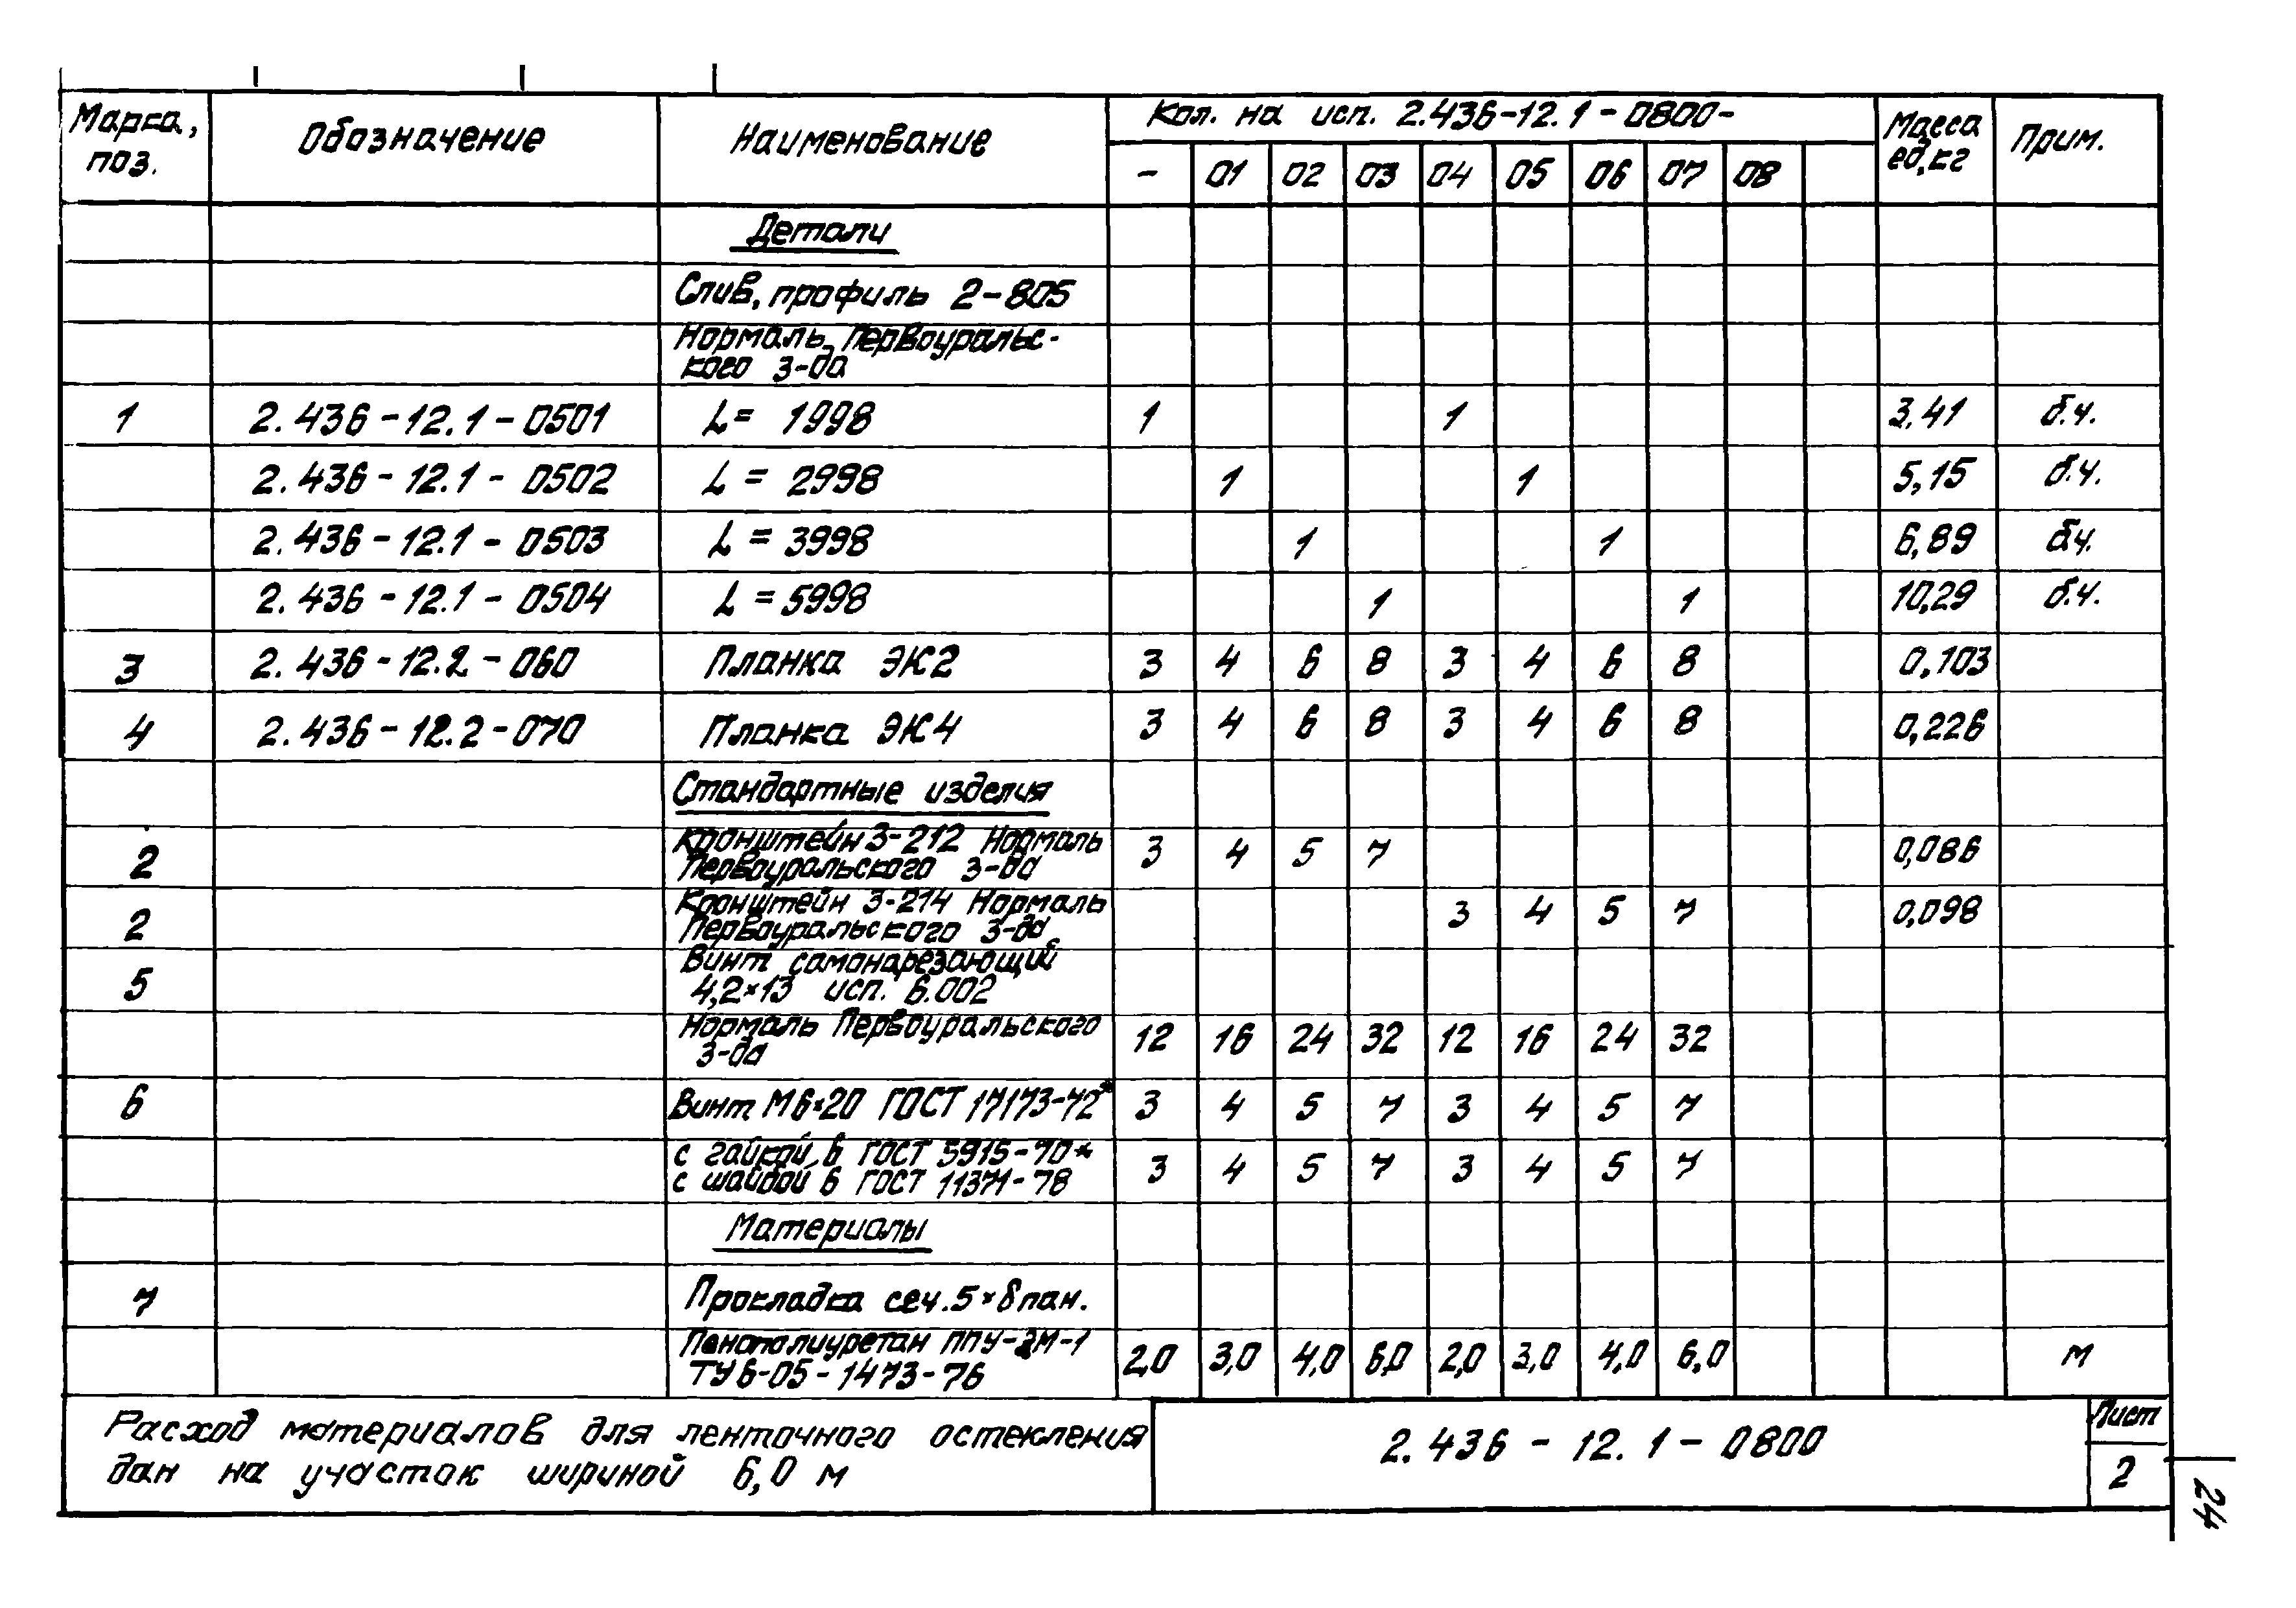 Марка, поз. Обозначение Наименование Кол. на исп. 2.436-12.1-0800- Масса ед,кг Прим.
- 01 02 03 04 05 06 07 08
Детали
Слив, профиль 2-805
Нормаль Первоуральс-
кого з-да
1 2.436-12.1-0501 L= 1998 1 1 3,41 б.ч.
2.436-12.1-0502 L= 2998 1 1 5,15 б.ч.
2.436-12.1-0503 L= 3998 1 1 6,89 б.ч.
2.436-12.1-0504 L=5998 1 1 10,29 б.ч.
3 2.436-12.2-060 Планка ЭК2 3 4 6 8 3 4 6 8 0,103
4 2.436-12.2-070 Планка ЭК4 3 4 6 8 3 4 6 8 0,226
Стандартные изделия
2 Кронштейн 3-212 Нормаль
Первоуральского з-да 3 4 5 7 0,086
2 Кронштейн 3-214 Нормаль
Первоуральского з-да 3 4 5 7 0,098
5 Винт самонарезающий
4,2×13 исп. 6.002
Нормаль Первоуральского
з-да 12 16 24 32 12 16 24 32
6 Винт М6×20 ГОСТ 17173-72* 3 4 5 7 3 4 5 7
с гайкой 6 ГОСТ 5915-70*
с шайбой 6 ГОСТ 11371-78 3 4 5 7 3 4 5 7
Материалы
7 Прокладка сеч.5×8пан.
Пенополиуретан ППУ-3М-1
ТУ6-05-1473-76 2,0 3,0 4,0 6,0 2,0 3,0 4,0 6,0 м
Расход материалов для ленточного остекления
дан на участок шириной 6,0 м
2.436-12.1-0800
Лист
2
24